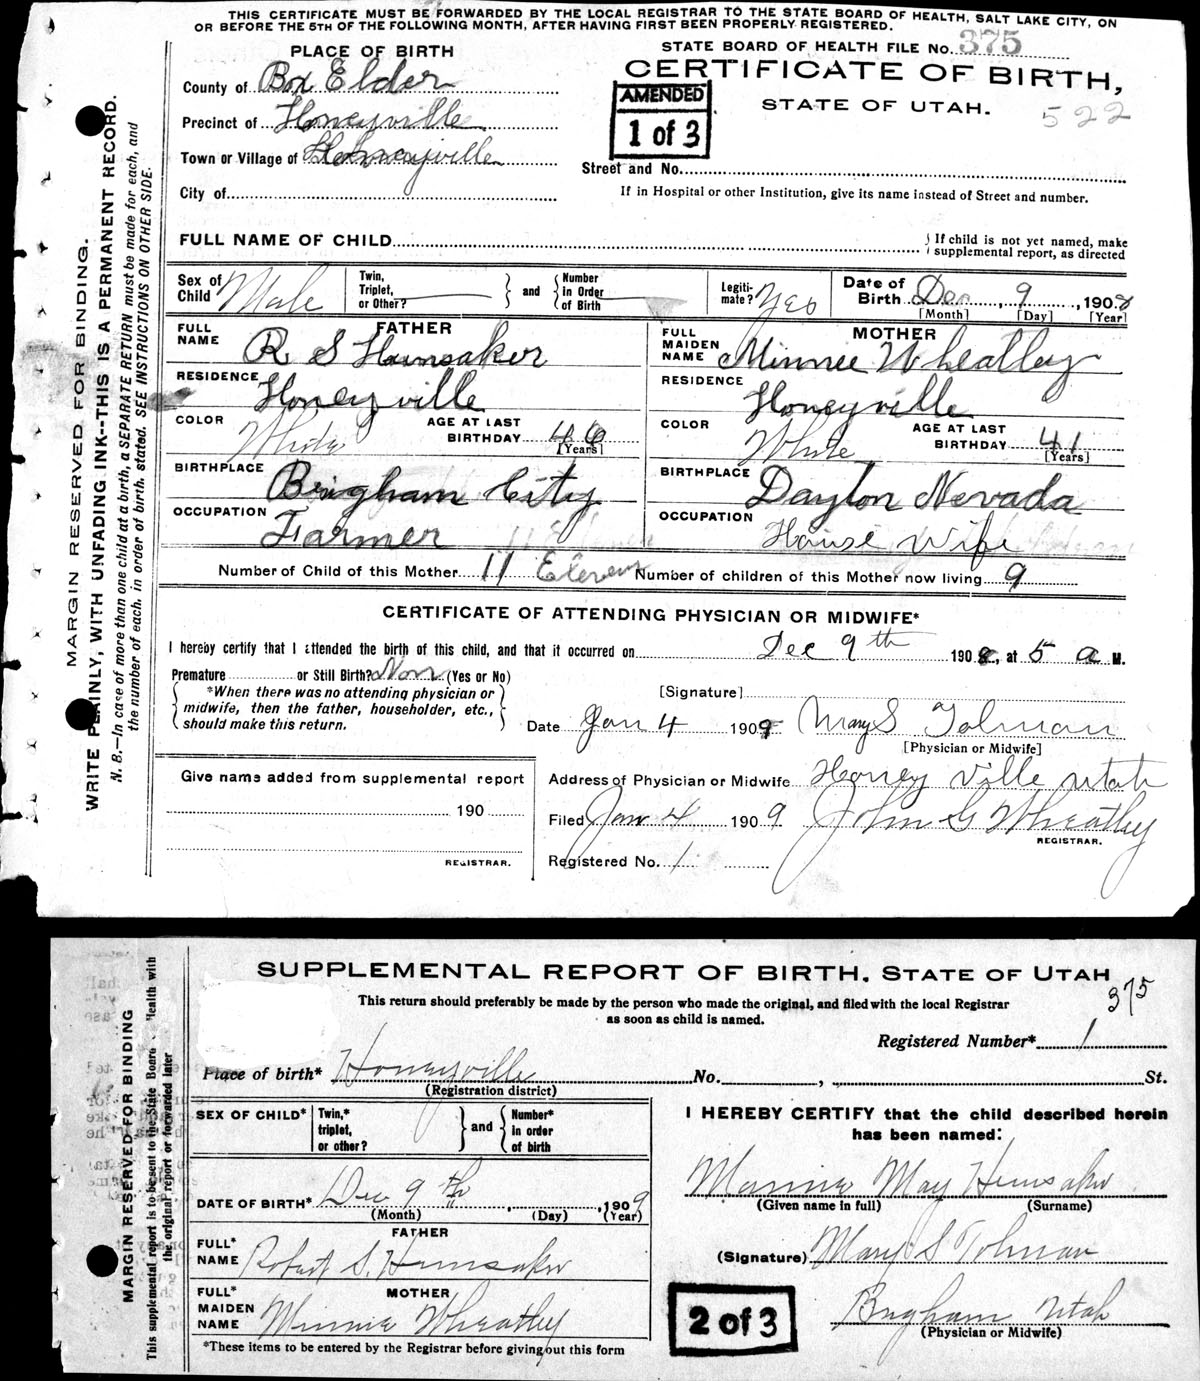 THIS CERTIFICATE MUST BE FORWARDED BY THE LOCAL REGISTRAR TO THE STATE BOARD OF HEALTH, SALT LAKE CITY, ON
OR BEFORE THE 5TH OF THE FOLLOWING MONTH, AFTER HAVING FIRST BEEN PROPERLY REGISTERED.
STATE BOARD OF HEALTH FILE No. 375
PLACE OF BIRTH
CERTIFICATE OF BIRTH,
STATE OF UTAH.
522
AMENDED
1 of 3
County of Box Elder
Precinct of Honeyville
Town or Village of Honeyville
City of
Street and No.
If in Hospital or other Institution, give its name instead of Street and number.
FULL NAME OF CHILD
If child is not yet named, make
supplemental report, as directed
Sex of Child Male
Twin, Triplet, or Other?
and
Number in Order of Birth
Legitimate? Yes
Date of Birth Dec 9, 1908
[Month] [Day] [Year]
FATHER
FULL NAME R S Hunsaker
RESIDENCE Honeyville
COLOR White
AGE AT LAST BIRTHDAY 46
[Years]
BIRTHPLACE Brigham City
OCCUPATION Farmer
MOTHER
FULL MAIDEN NAME Minnie Wheatley
RESIDENCE Honeyville
COLOR White
AGE AT LAST BIRTHDAY 41
[Years]
BIRTHPLACE Dayton Nevada
OCCUPATION House Wife
Number of Child of this Mother 11 Eleven
Number of children of this Mother now living 9
CERTIFICATE OF ATTENDING PHYSICIAN OR MIDWIFE*
I hereby certify that I attended the birth of this child, and that it occurred on Dec 9th 1908, at 5 a M.
Premature or Still Birth? Non (Yes or No)
*When there was no attending physician or
midwife, then the father, householder, etc.,
should make this return.
[Signature]
Date Jan 4 1909 Mary S Tolman
[Physician or Midwife]
Give name added from supplemental report
190
REGISTRAR.
Address of Physician or Midwife Honey Ville Utah
Filed Jan 4 1909 John G Wheatley
REGISTRAR.
Registered No. 1
MARGIN RESERVED FOR BINDING.
WRITE PLAINLY, WITH UNFADING INK--THIS IS A PERMANENT RECORD.
N. B.—In case of more than one child at a birth, a SEPARATE RETURN must be made for each, and
the number of each, in order of birth, stated. SEE INSTRUCTIONS ON OTHER SIDE.
SUPPLEMENTAL REPORT OF BIRTH, STATE OF UTAH
375
This return should preferably be made by the person who made the original, and filed with the local Registrar
as soon as child is named.
Registered Number* 1
Place of birth* Honeyville No. , St.
(Registration district)
SEX OF CHILD*
Twin,* triplet, or other?
and
Number* in order of birth
DATE OF BIRTH* Dec 9th, 1909
(Month) (Day) (Year)
FATHER
FULL* NAME Robert S. Hunsaker
MOTHER
FULL* MAIDEN NAME Minnie Wheatley
*These items to be entered by the Registrar before giving out this form
I HEREBY CERTIFY that the child described herein
has been named:
Mannie May Hunsaker
(Given name in full) (Surname)
(Signature) Mary S Tolman
Brigham Utah
(Physician or Midwife)
2 of 3
MARGIN RESERVED FOR BINDING
This supplemental report is to be sent to the State Board Health with
the original report or forwarded later